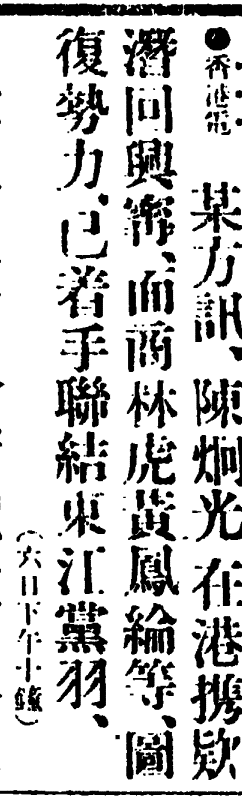 ●香港電　某方訊、陳炯光在港携欵
潛回興寗、面商林虎黃鳳綸等、圖
復勢力、已着手聯結東江黨羽、
（六日下午十鐘）